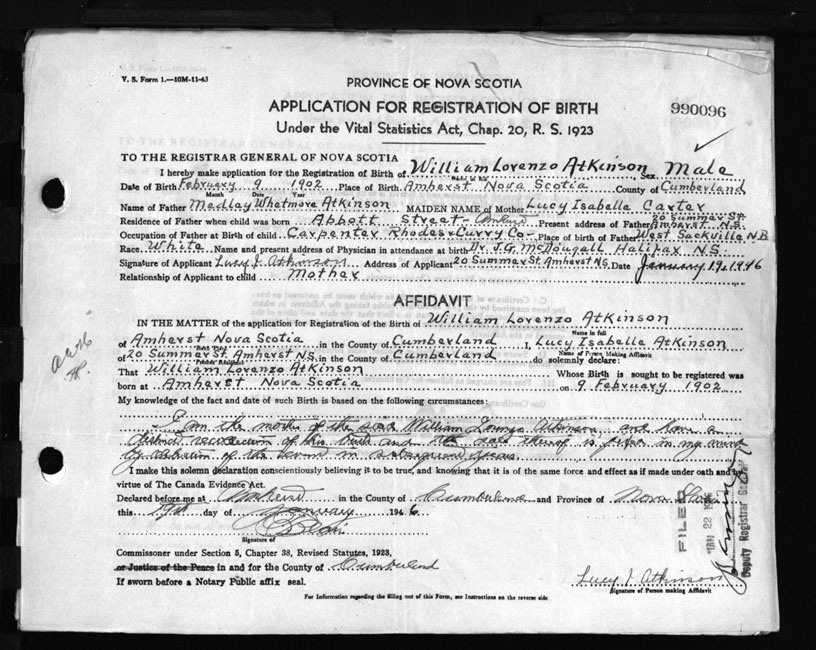 V. S. Form 1.—10M-11-43
PROVINCE OF NOVA SCOTIA
APPLICATION FOR REGISTRATION OF BIRTH
990096
Under the Vital Statistics Act, Chap. 20, R. S. 1923
TO THE REGISTRAR GENERAL OF NOVA SCOTIA
I hereby make application for the Registration of Birth of William Lorenzo Atkinson Sex Male
Date of Birth February 9 1902 Place of Birth Amherst Nova Scotia County of Cumberland
Month Date Year
Name of Father Medlay Whetmore Atkinson MAIDEN NAME of Mother Lucy Isabelle Carter
20 Summer St.
Residence of Father when child was born Abbott Street - Amherst Present address of Father Amherst N.S.
Occupation of Father at Birth of Child Carpenter Rhodes Curry Co- Place of birth of Father West Sackville N.B
Race White Name and present address of Physician in attendance at birth Dr. J.G. McDougall Halifax N.S.
Signature of Applicant Lucy I. Atkinson Address of Applicant 20 Summer St. Amherst N.S. Date January 19, 1946
Relationship of Applicant to child Mother
AFFIDAVIT
IN THE MATTER of the application for Registration of the Birth of William Lorenzo Atkinson
Name in full
of Amherst Nova Scotia in the County of Cumberland I, Lucy Isabelle Atkinson
Name of Person Making Affidavit
of 20 Summer St. Amherst N.S. in the County of Cumberland do solemnly declare:
That William Lorenzo Atkinson Whose Birth is sought to be registered was
born at Amherst Nova Scotia on 9 February 1902
My knowledge of the fact and date of such Birth is based on the following circumstances:
I am the mother of the said William Lorenzo Atkinson, and have a
distinct recollection of his birth and the date thereof is fixed in my mind
by of the in subsequent years
I make this solemn declaration conscientiously believing it to be true, and knowing that it is of the same force and effect as if made under oath and by
virtue of The Canada Evidence Act.
Declared before me at Amherst in the County of Cumberland and Province of Nova Scotia
this 19th day of January 1946
Signature of
Commissioner under Section 5, Chapter 38, Revised Statutes, 1923,
or Justice of the Peace in and for the County of Cumberland
If sworn before a Notary Public affix seal.
Lucy I. Atkinson
Signature of Person making Affidavit
For Information regarding the filling out of this Form, see Instructions on the reverse side
FILED
JAN 22 1946
Deputy Registrar General